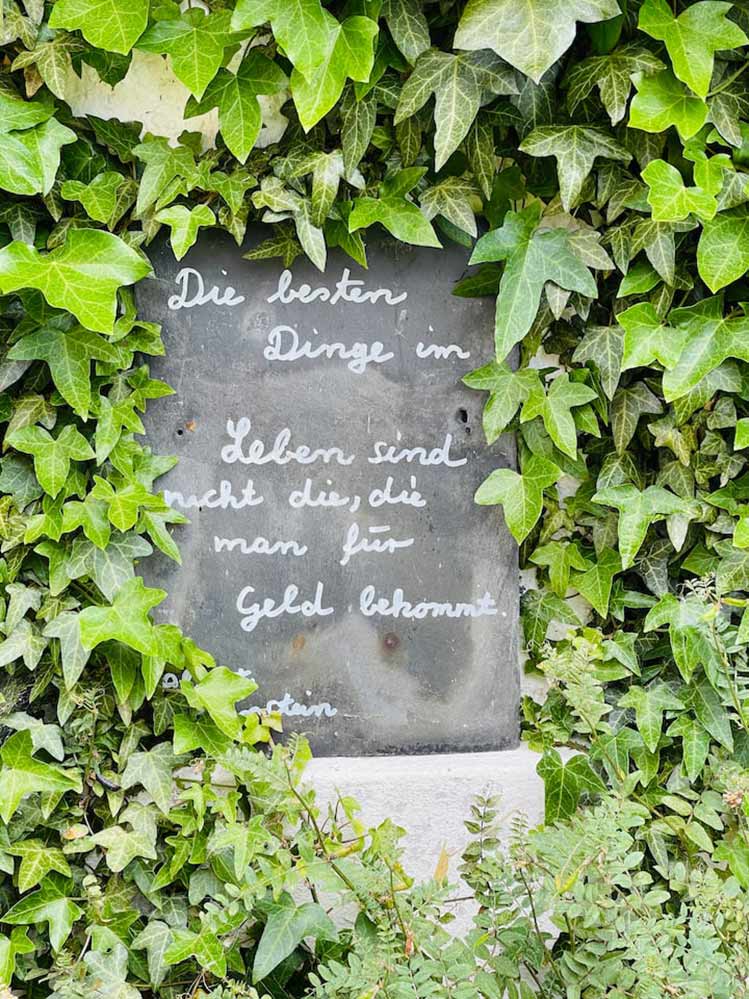 Die besten
Dinge im
Leben sind
nicht die, die
man für
Geld bekommt.
nstein